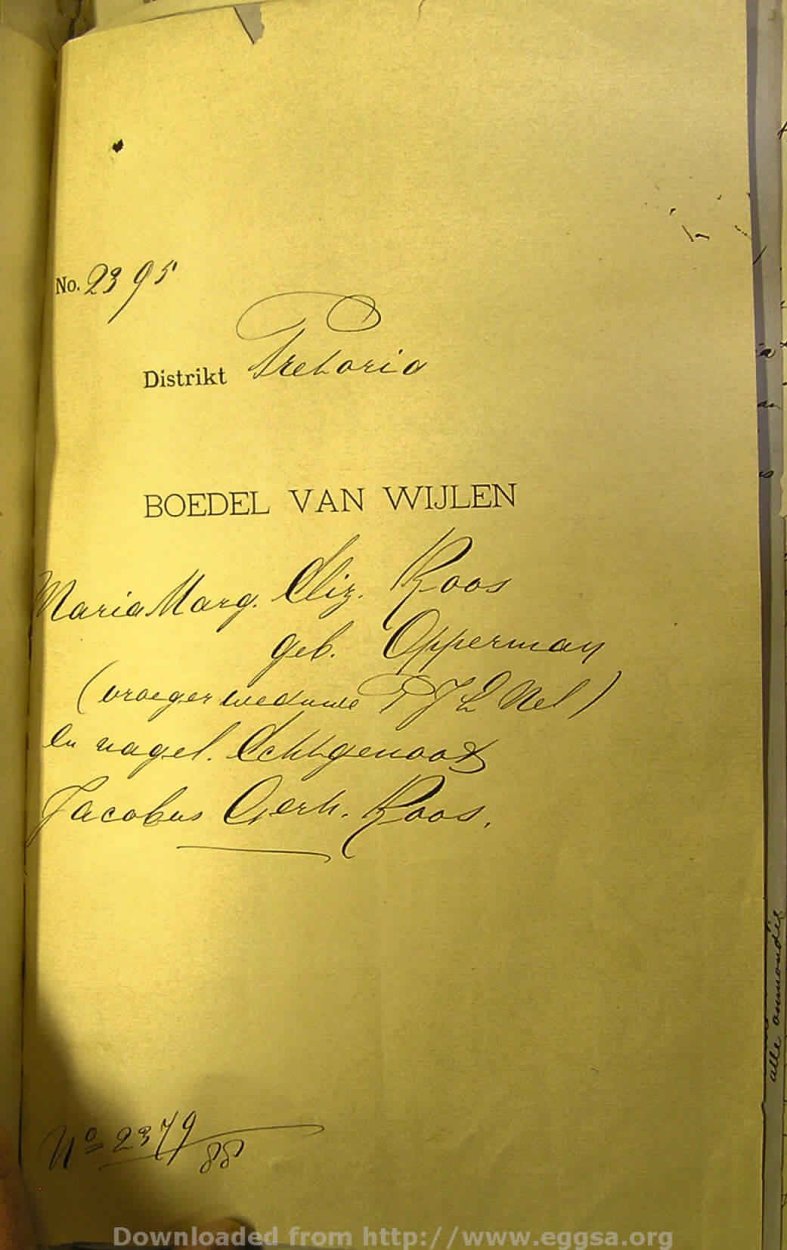 No. 2395
Distrikt Pretoria
BOEDEL VAN WIJLEN
Maria Marg. Eliz. Roos
geb. Opperman
(vroeger weduwe P J L Nel)
en nagel. Echtgenoot
Jacobus Gerh. Roos.
No 2379/88
alle onmondig
Downloaded from http://www.eggsa.org